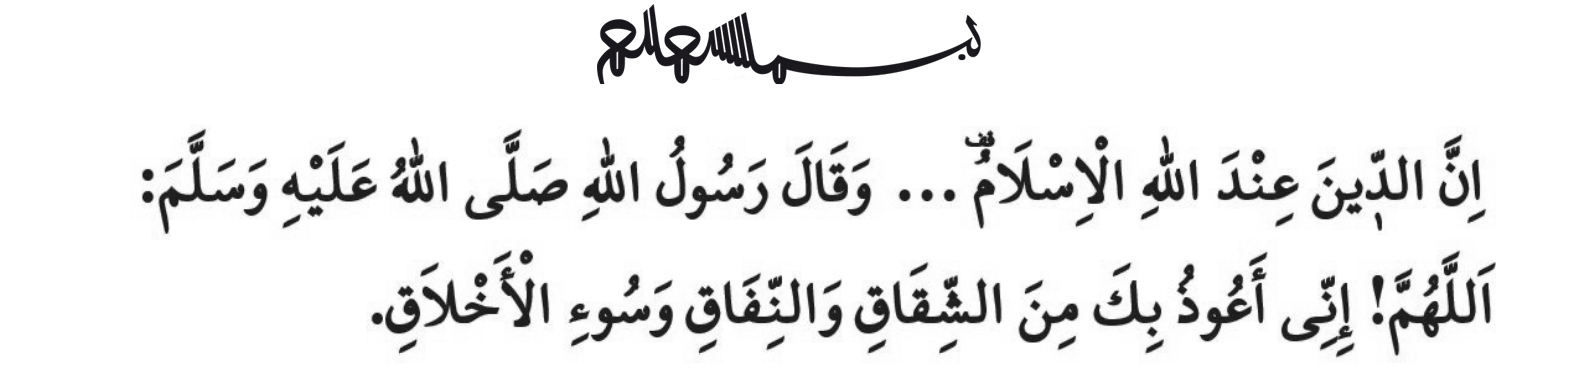 بسم الله الرحمن الرحيم
اِنَّ الدّ۪ينَ عِنْدَ اللّٰهِ الْاِسْلَامُ۠ ... وَقَالَ رَسُولُ اللّٰهِ صَلَّى اللّٰهُ عَلَيْهِ وَسَلَّمَ:
اَللَّهُمَّ! إِنِّى أَعُوذُ بِكَ مِنَ الشِّقَاقِ وَالنِّفَاقِ وَسُوءِ الْأَخْلاَقِ.